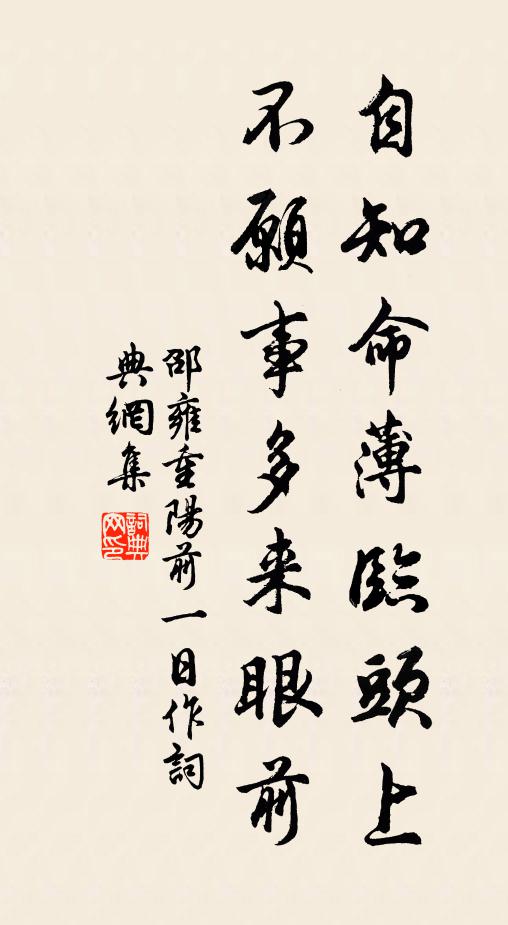 自知命薄臨頭上
不願事多来眼前
邵雍重陽前一日作詞
典網集
詞典網印